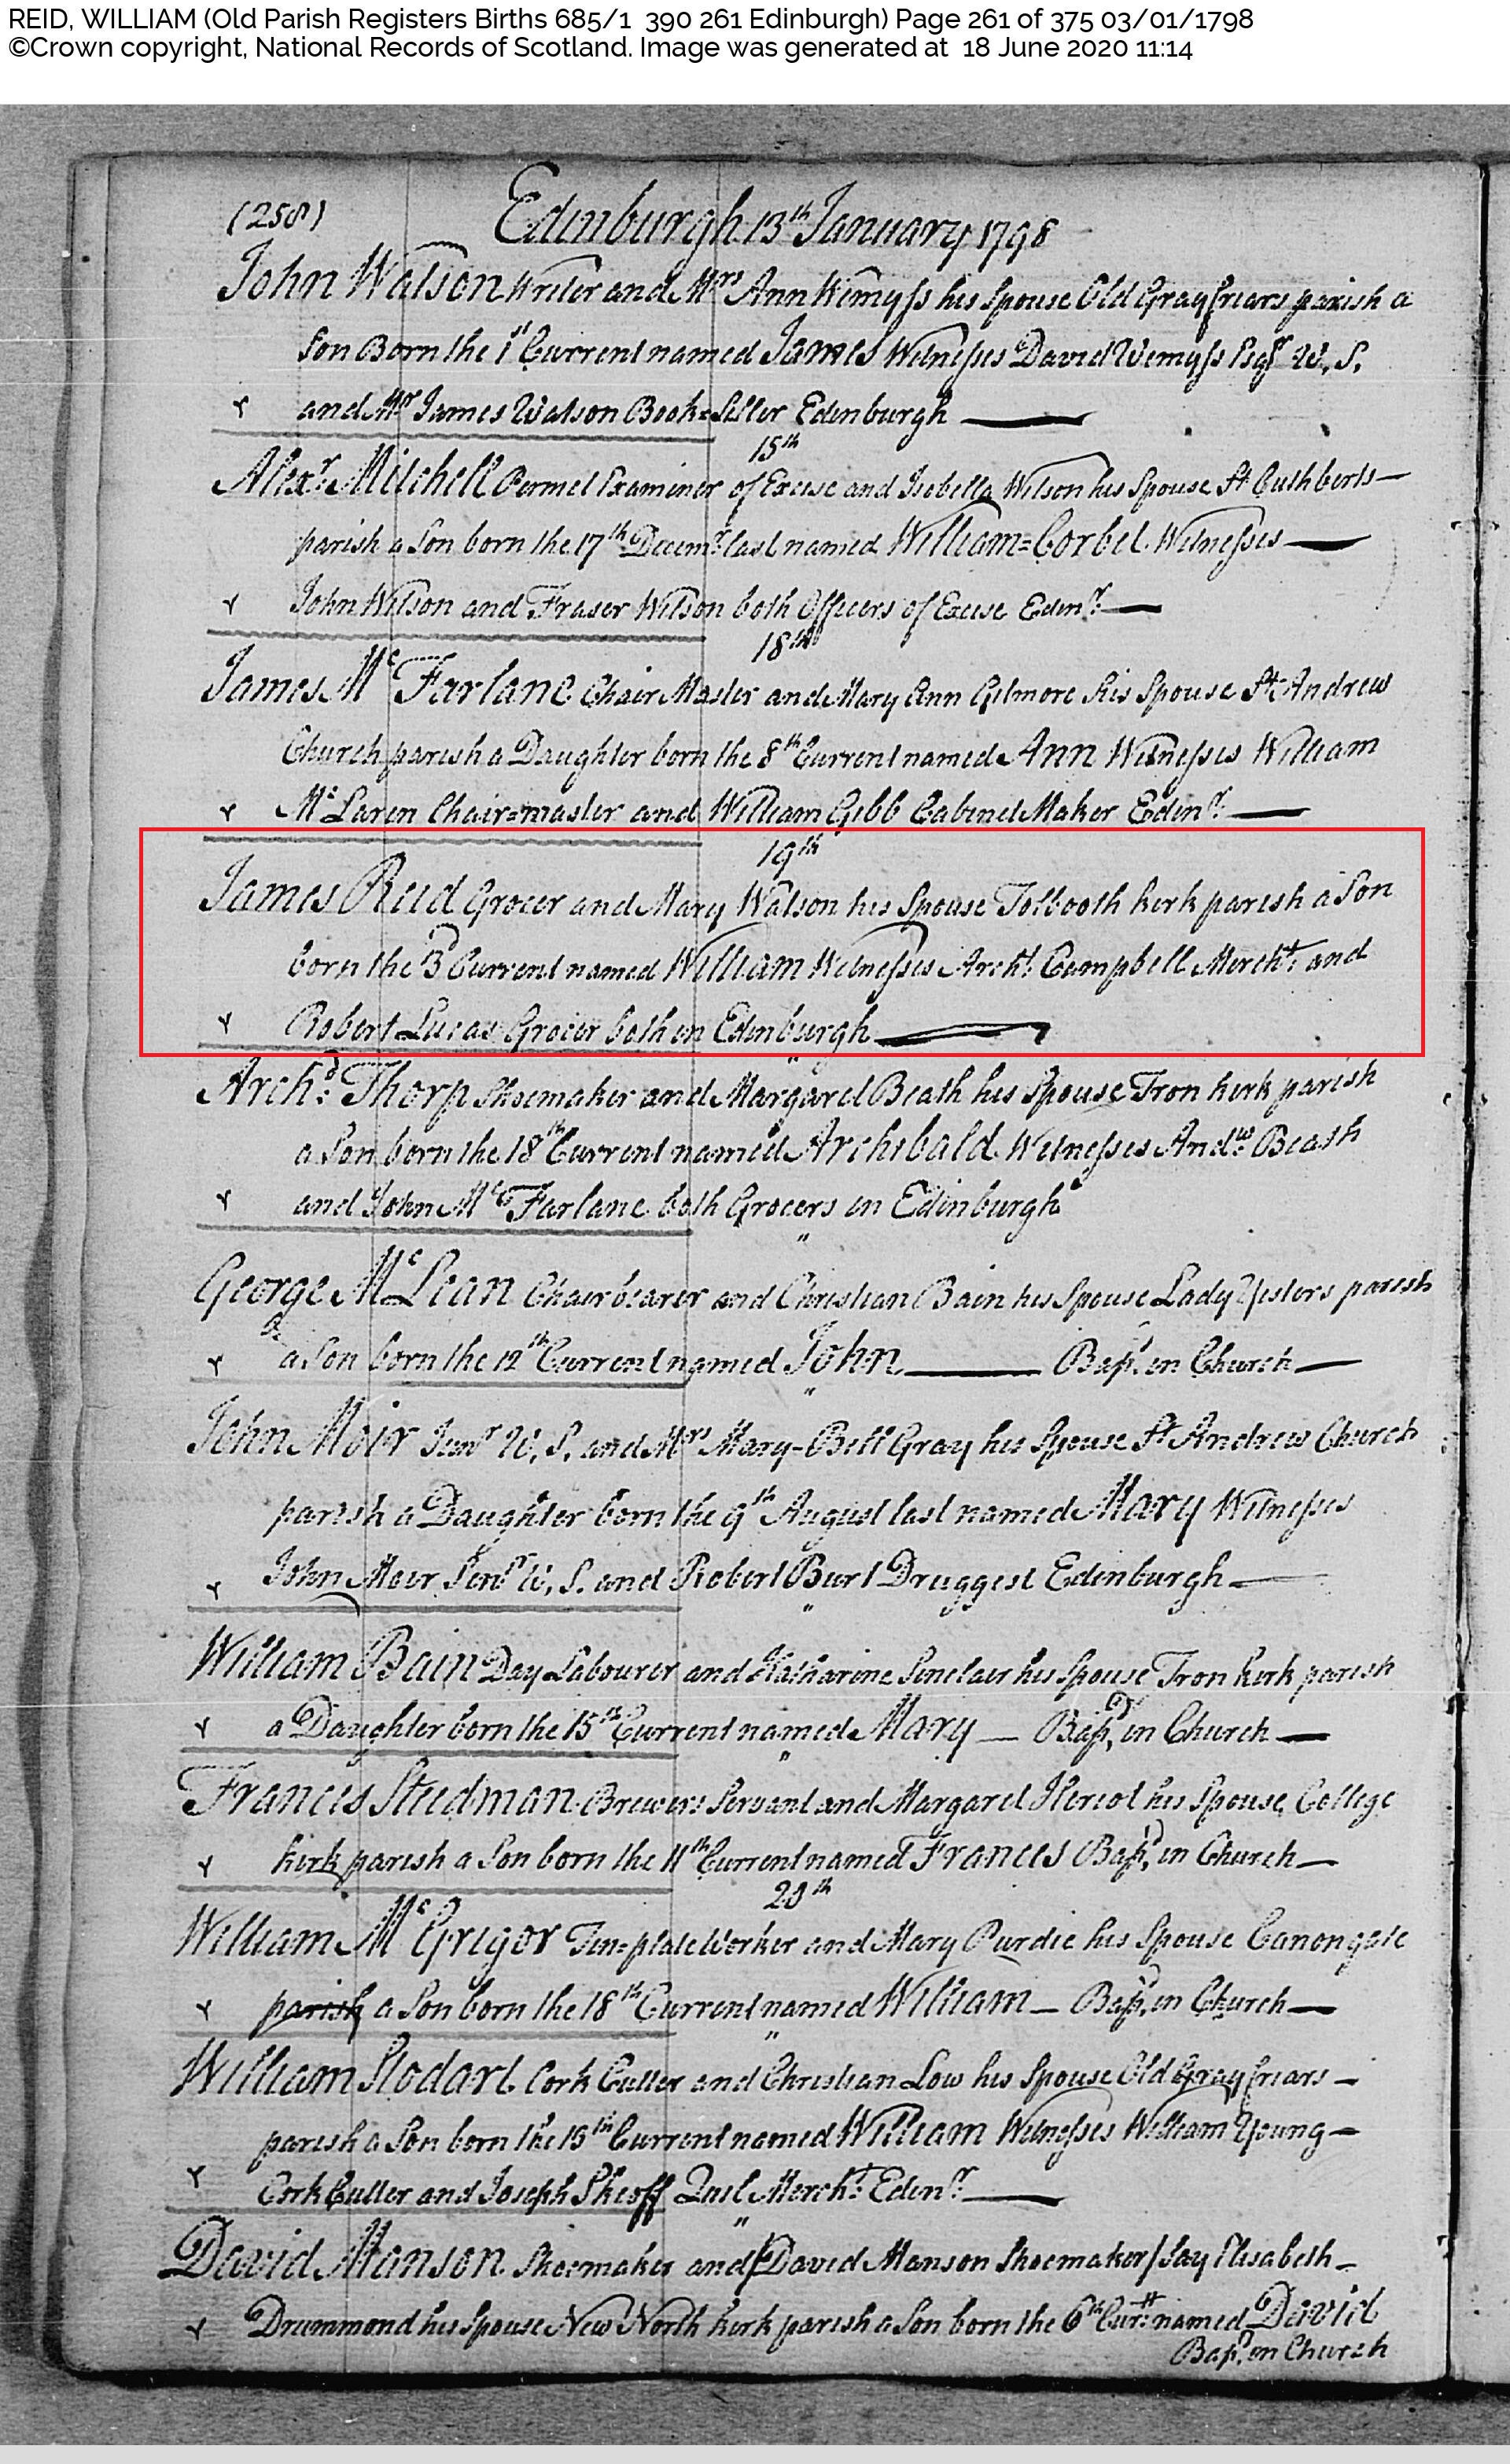 REID, WILLIAM (Old Parish Registers Births 685/1 390 261 Edinburgh) Page 261 of 375 03/01/1798
©Crown copyright, National Records of Scotland. Image was generated at 18 June 2020 11:14
(258) Edinburgh 13th January 1798
John Watson Writer and Mrs Ann Wemyss his Spouse Old Grayfriars parish a
Son Born the 1st Current named James Witnesses David Wemyss Esqr W. S.
and Mr James Watson Book=Seller Edinburgh
15th
Alexr. Mitchell Permet Examiner of Excise and Isobella Wilson his Spouse St Cuthberts
parish a Son born the 17th Decemr. last named William=Corbet. Witnesses
John Wilson and Fraser Wilson both Officers of Excise Edinr.
18th
James McFarlane Chair Master and Mary Ann Gilmore his Spouse St Andrew
Church parish a Daughter born the 8th Current named Ann Witnesses William
McLaren Chair=master and William Gibb Cabinet Maker Edinr.
19th
James Reid Grocer and Mary Watson his Spouse Tolbooth kirk parish a Son
born the 3d Current named William Witnesses Archd. Campbell Mercht. and
Robert Lucas Grocer both in Edinburgh
"
Archd. Thorp Shoemaker and Margaret Beath his Spouse Tron kirk parish
a Son born the 18th Current named Archibald. Witnesses Andw. Beath
and John McFarlane both Grocers in Edinburgh
"
George McLean Chairbearer and Christian Bain his Spouse Lady Yesters parish
a Son born the 12th Current named John Bapd. in Church
"
John Moir Junr W. S. and Mrs Mary-Bell Gray his Spouse St Andrew Church
parish a Daughter born the 9th August last named Mary Witnesses
John Moir Senr W. S. and Robert Burt Druggest Edinburgh
"
William Bain Day Labourer and Katharine Sinclair his Spouse Tron kirk parish
a Daughter born the 15th Current named Mary Bapd. in Church
"
Francis Stedman Brewers Servant and Margaret Heriot his Spouse College
kirk parish a Son born the 11th Current named Francis Bapd. in Church
20th
William McGrigor Tin=plate Worker and Mary Purdie his Spouse Canongate
parish a Son born the 18th Current named William Bapd. in Church
"
William Stodart Cork Cutter and Christian Low his Spouse Old Grayfriars
parish a Son born the 15th Current named William Witnesses William Young
Cork Cutter and Joseph Mercht. Edinr.
"
David Manson Shoemaker and David Manson Shoemaker/Say Elisabeth
Drummond his Spouse New North kirk parish a Son born the 6th Curtt. named David
Bapd. in Church